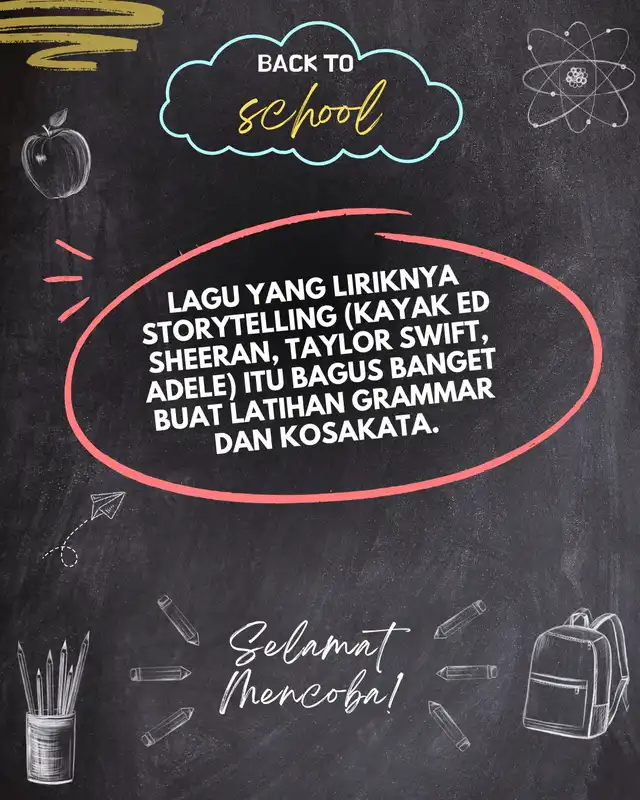 BACK TO
school
LAGU YANG LIRIKNYA
STORYTELLING (KAYAK ED
SHEERAN, TAYLOR SWIFT,
ADELE) ITU BAGUS BANGET
BUAT LATIHAN GRAMMAR
DAN KOSAKATA.
Selamat
Mencoba!